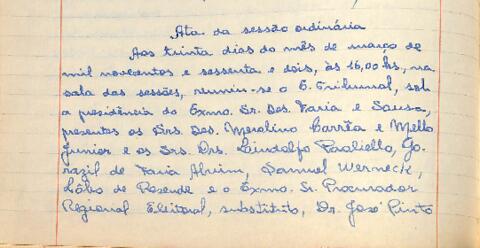 Ata da sessão ordinária
Aos trinta dias do mês de março de
mil novecentos e sessenta e dois, às 16,00 hs, na
sala das sessões, reuniu-se o E. Tribunal, sob
a presidência do Exmo. Sr. Des. Faria e Sousa,
presentes os Srs. Des. Merolino Corrêa e Mello
Junior e os Srs. Drs. Lindolfo Paoliello, Go-
razil de Faria Alvim, Samuel Werneck,
Lôbo de Resende e o Exmo. Sr. Procurador
Regional Eleitoral, substituto, Dr. José Pinto